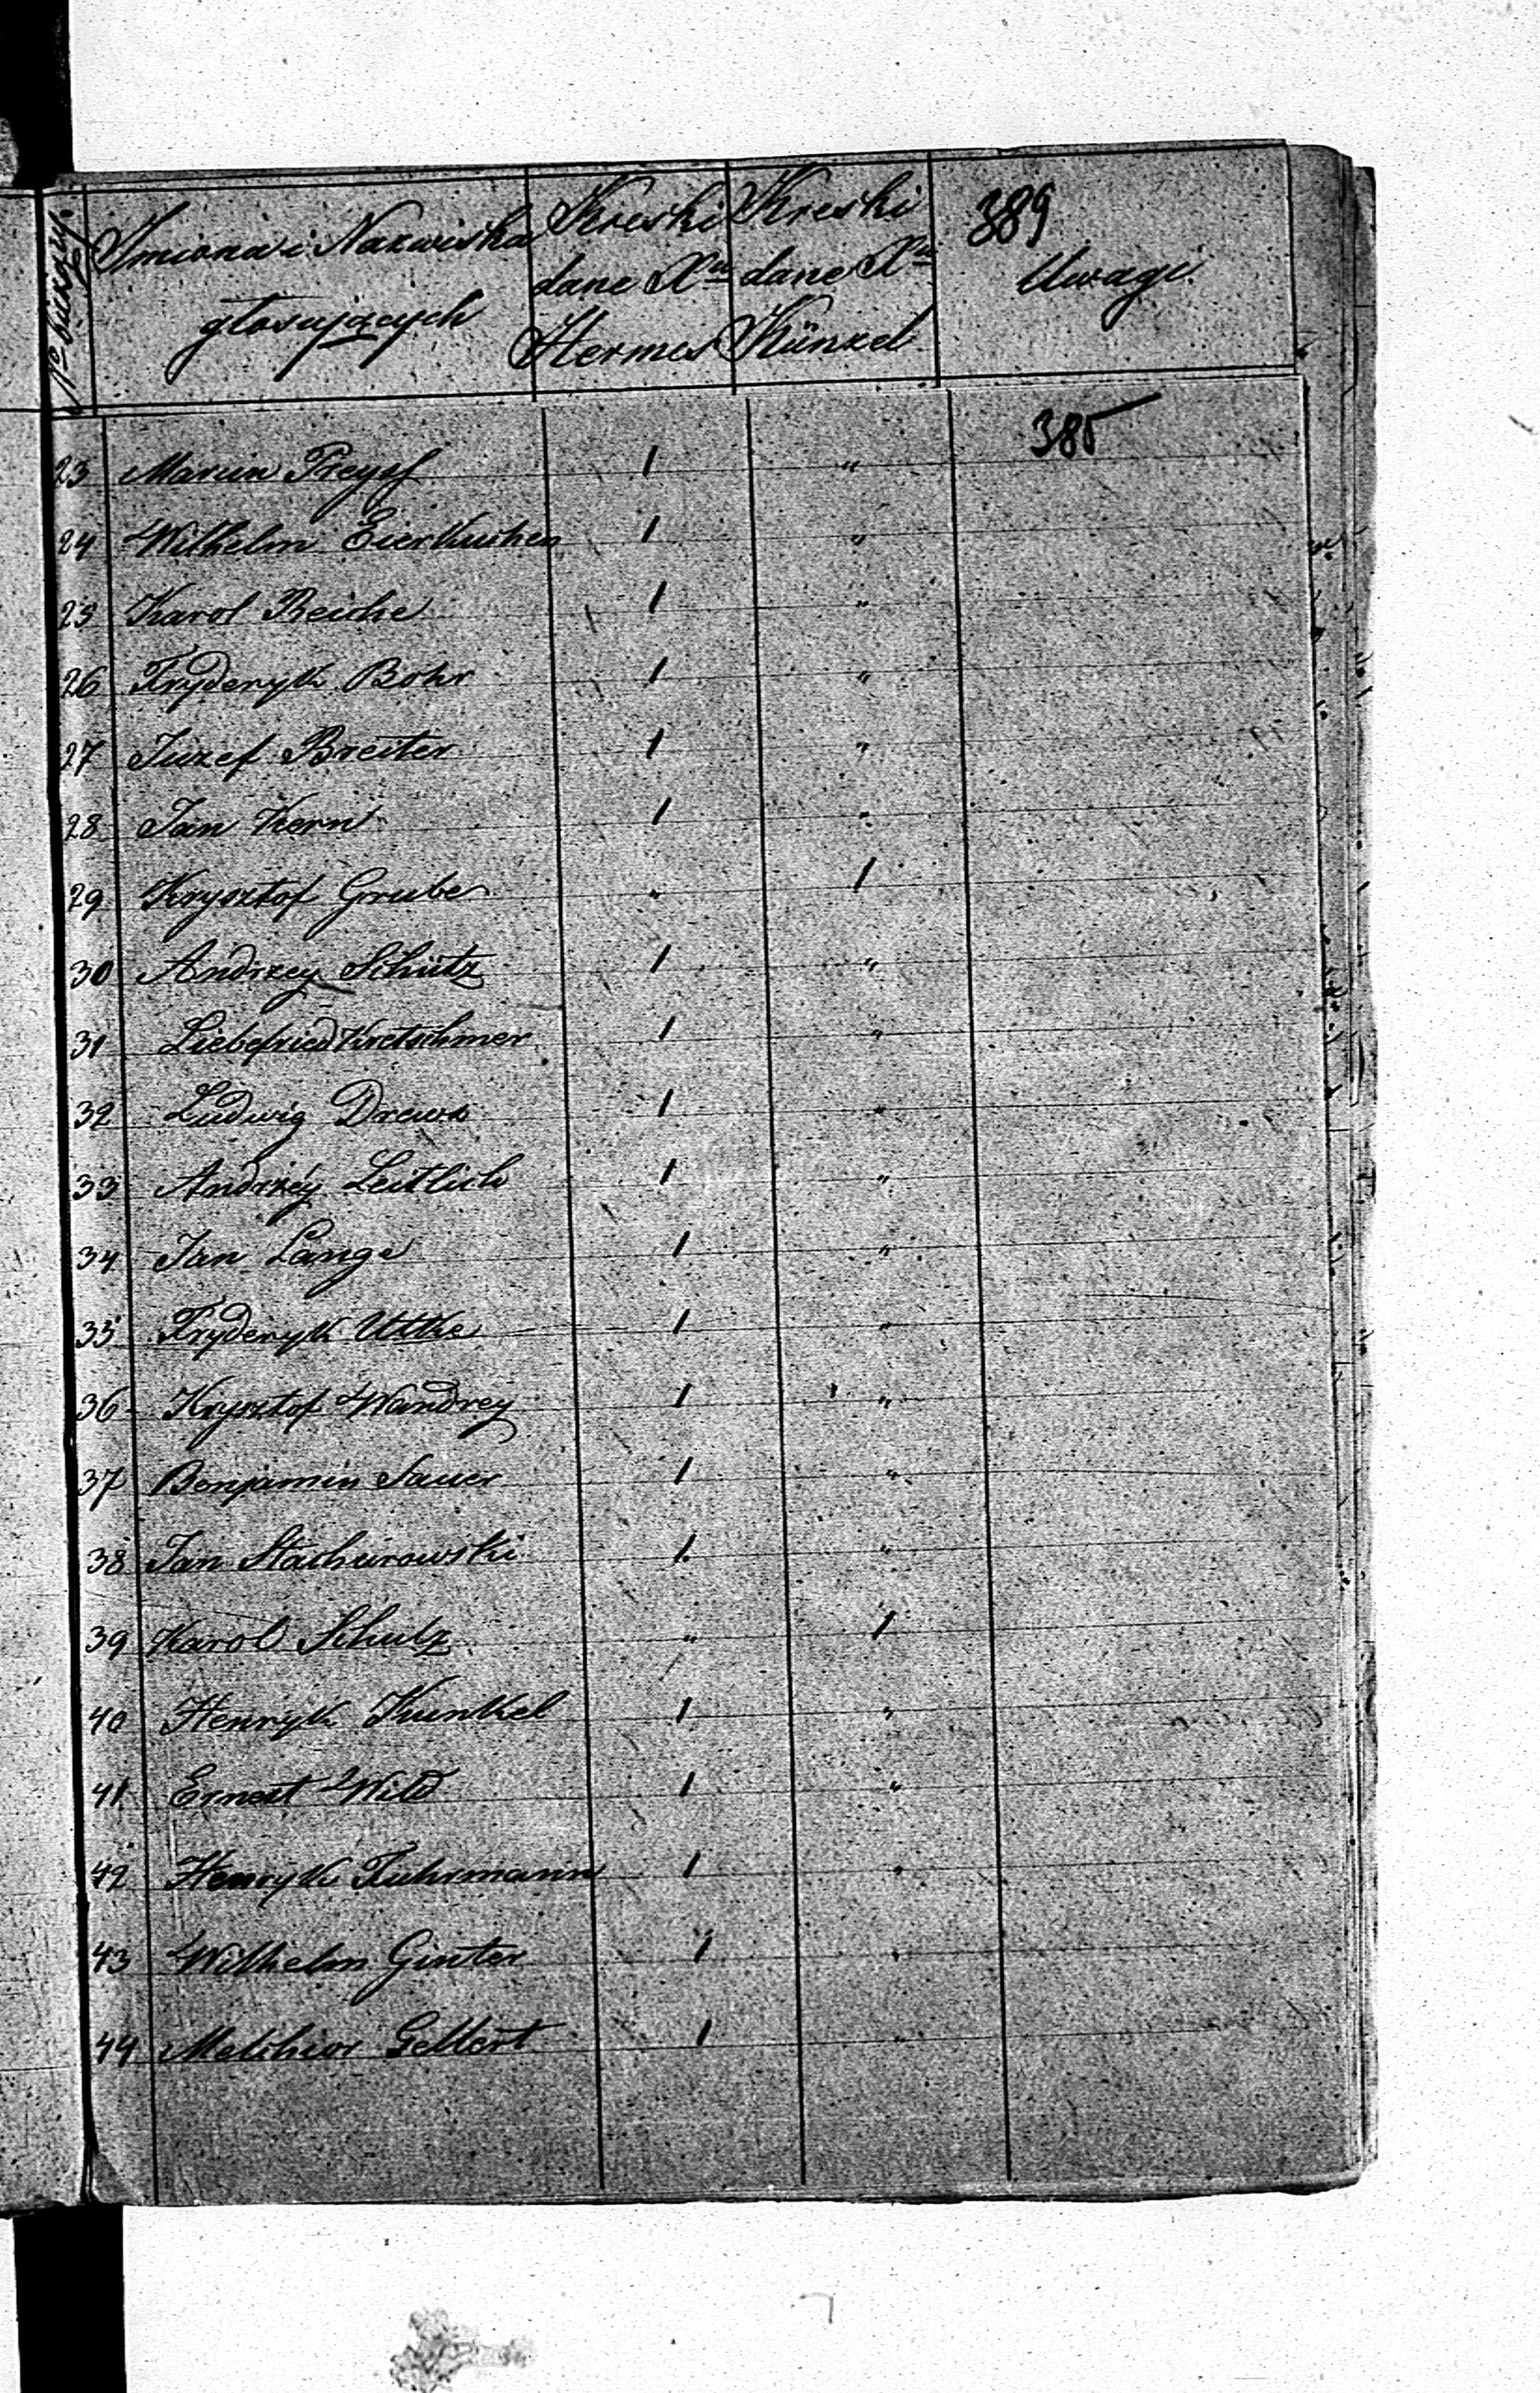 No bieżący.
Imiona i Nazwiska
głosujących
Kreski
dane Xu
Hermes
Kreski
dane Xu
Künzel
389
Uwagi.
385
23 Marcin Preyss 1 "
24 Wilhelm Eierkuchen 1 "
25 Karol Reiche 1 "
26 Fryderyk Bohr 1 "
27 Juzef Breiter 1 "
28 Jan Kern 1 "
29 Krysztof Grube " 1
30 Andrzey Schütz 1 "
31 Liebefried Kretschmer 1 "
32 Ludwig Drews 1 "
33 Andrzey Leitlich 1 "
34 Jan Lange 1 "
35 Fryderyk Uttke 1 "
36 Krysztof Wandrey 1 "
37 Benjamin Sauer 1 "
38 Jan Stachurowski 1 "
39 Karol Schulz " 1
40 Henryk Kunkel 1 "
41 Ernest Wild 1 "
42 Henryk Fuhrmann 1 "
43 Wilhelm Ginter 1 "
44 Melchior Gellert 1 "